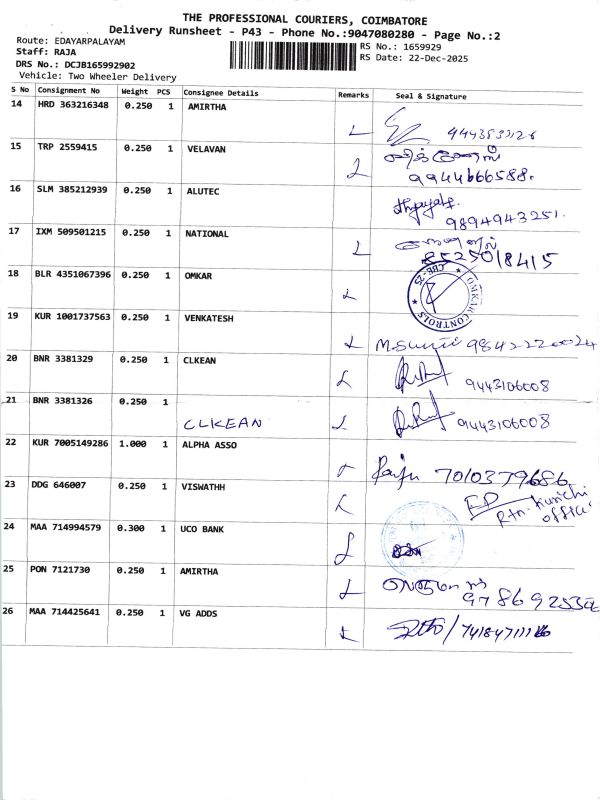 THE PROFESSIONAL COURIERS, COIMBATORE
Delivery Runsheet - P43 - Phone No.:9047080280 - Page No.:2
Route: EDAYARPALAYAM
RS No.: 1659929
Staff: RAJA
RS Date: 22-Dec-2025
DRS No.: DCJB165992902
Vehicle: Two Wheeler Delivery
S No Consignment No Weight PCS Consignee Details Remarks Seal & Signature
14 HRD 363216348 0.250 1 AMIRTHA
L
15 TRP 2559415 0.250 1 VELAVAN
L 9944666588.
16 SLM 385212939 0.250 1 ALUTEC
9894943251.
17 IXM 509501215 0.250 1 NATIONAL
L 8525018415
18 BLR 4351067396 0.250 1 OMKAR
L OMKAR CONTROLS CBE-25
19 KUR 1001737563 0.250 1 VENKATESH
L 9842220024
20 BNR 3381329 0.250 1 CLKEAN
L 9443106008
21 BNR 3381326 0.250 1
CLKEAN L 9443106008
22 KUR 7005149286 1.000 1 ALPHA ASSO
Raju 7010379686
23 DDG 646007 0.250 1 VISWATHH
L Rtn. Kurichi
office
24 MAA 714994579 0.300 1 UCO BANK
L
25 PON 7121730 0.250 1 AMIRTHA
L
26 MAA 714425641 0.250 1 VG ADDS
L